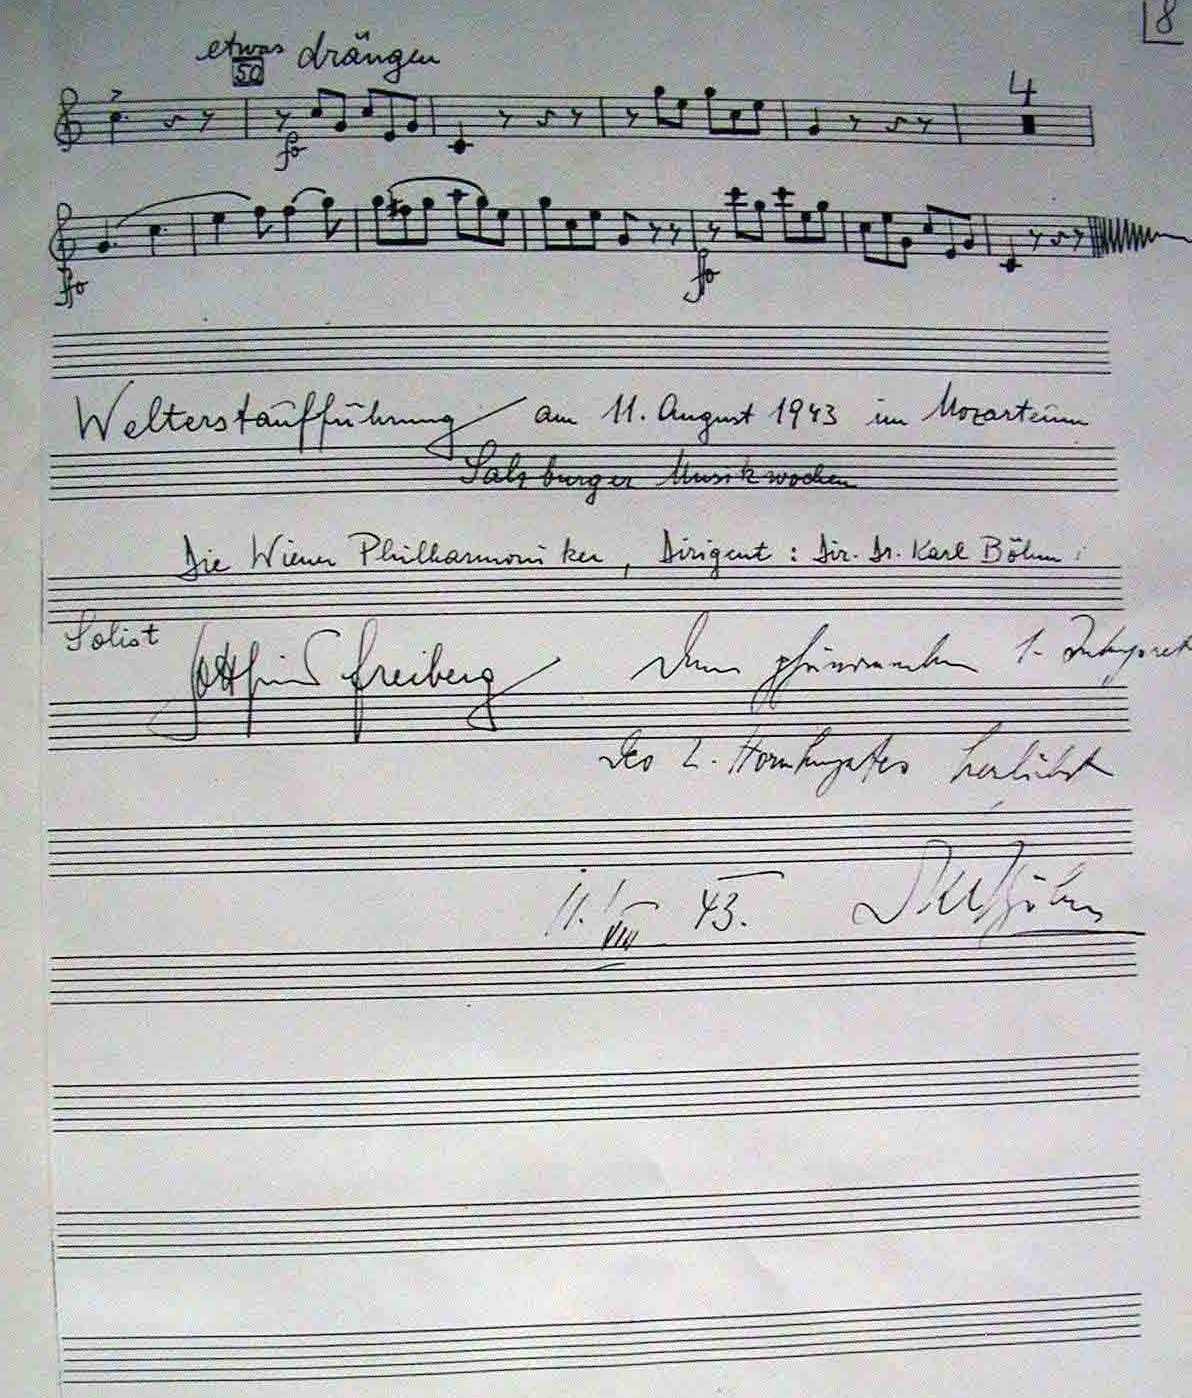 8
etwas drängen
50
fo
4
ffo
fo
Welterstaufführung am 11. August 1943 im Mozarteum
Salzburger Musikwochen
Die Wiener Philharmoniker, Dirigent: Dir. Dr. Karl Böhm
Solist
Gottfried Freiberg
Dem phänomenalen 1. Interpret
des 2. Hornkonzertes herzlichst
11. VIII 43.
Karl Böhm